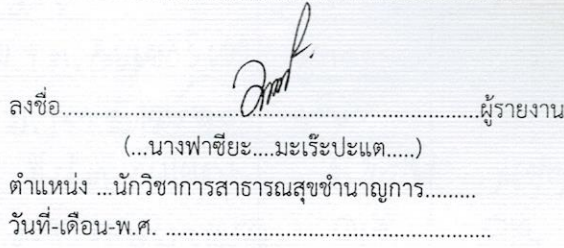 ลงชื่อ....................................................................ผู้รายงาน
(...นางฟาซียะ....มะเร๊ะปะแต.....)
ตำแหน่ง ...นักวิชาการสาธารณสุขชำนาญการ.........
วันที่-เดือน-พ.ศ. .....................................................